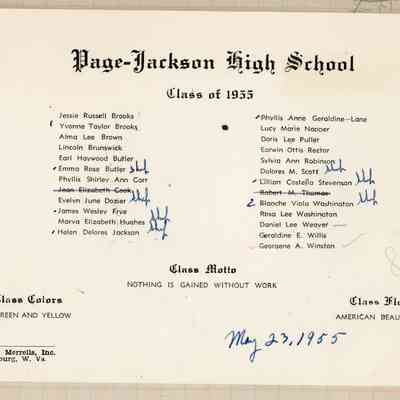 Page-Jackson High School
Class of 1955
Jessie Russell Brooks
Yvonne Taylor Brooks
Alma Lee Brown
Lincoln Brunswick
Earl Haywood Butler
Emma Rose Butler
Phyllis Shirley Ann Carr
Jean Elizabeth Cook
Evelyn June Dozier
James Wesley Frye
Marva Elizabeth Hughes
Helen Delores Jackson
Phyllis Anne Geraldine Lane
Lucy Marie Napper
Doris Lee Puller
Earwin Ottis Rector
Sylvia Ann Robinson
Dolores M. Scott
Lillian Costella Stevenson
Robert M. Thomas
2 Blanche Viola Washington
Rosa Lee Washington
Daniel Lee Weaver
Geraldine E. Willis
Georgene A. Winston
Class Motto
NOTHING IS GAINED WITHOUT WORK
Class Colors
REEN AND YELLOW
Class Flo
AMERICAN BEAU
May 23, 1955
Merrells, Inc.
burg, W. Va.